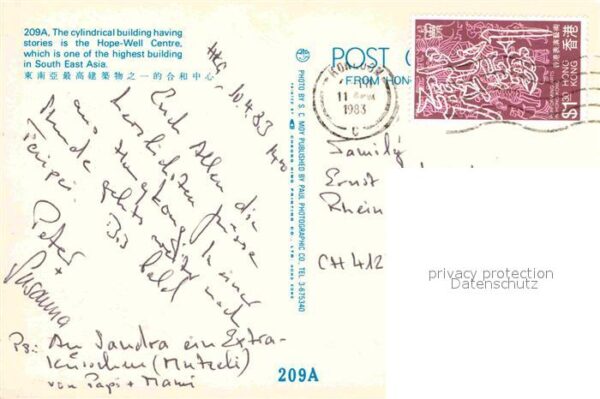 209A, The cylindrical building having
stories is the Hope-Well Centre,
which is one of the highest building
in South East Asia.
東南亞最高建築物之一的合和中心
HKG, 10.4.83
Euch Allen die
herzlichsten Grüsse
aus Hongkong. In einer
Stunde gehts weiter nach
Taipei. Bis bald
Peter +
Susanna
PS: An Sandra ein Extra-
küsschen (Mutzeli)
von Papi + Mami
PRINTED BY S. C. MOY PUBLISHED BY PAUL PHOTOGRAPHIC CO., TEL: 3-675340
PRINTING CO., LTD. HONG KONG
209A
POST C
FROM HON
HONG KONG
11
1983
C
$1.30 HONG KONG 香港
Family
Ernst
Rhein
CH 412
privacy protection
Datenschutz